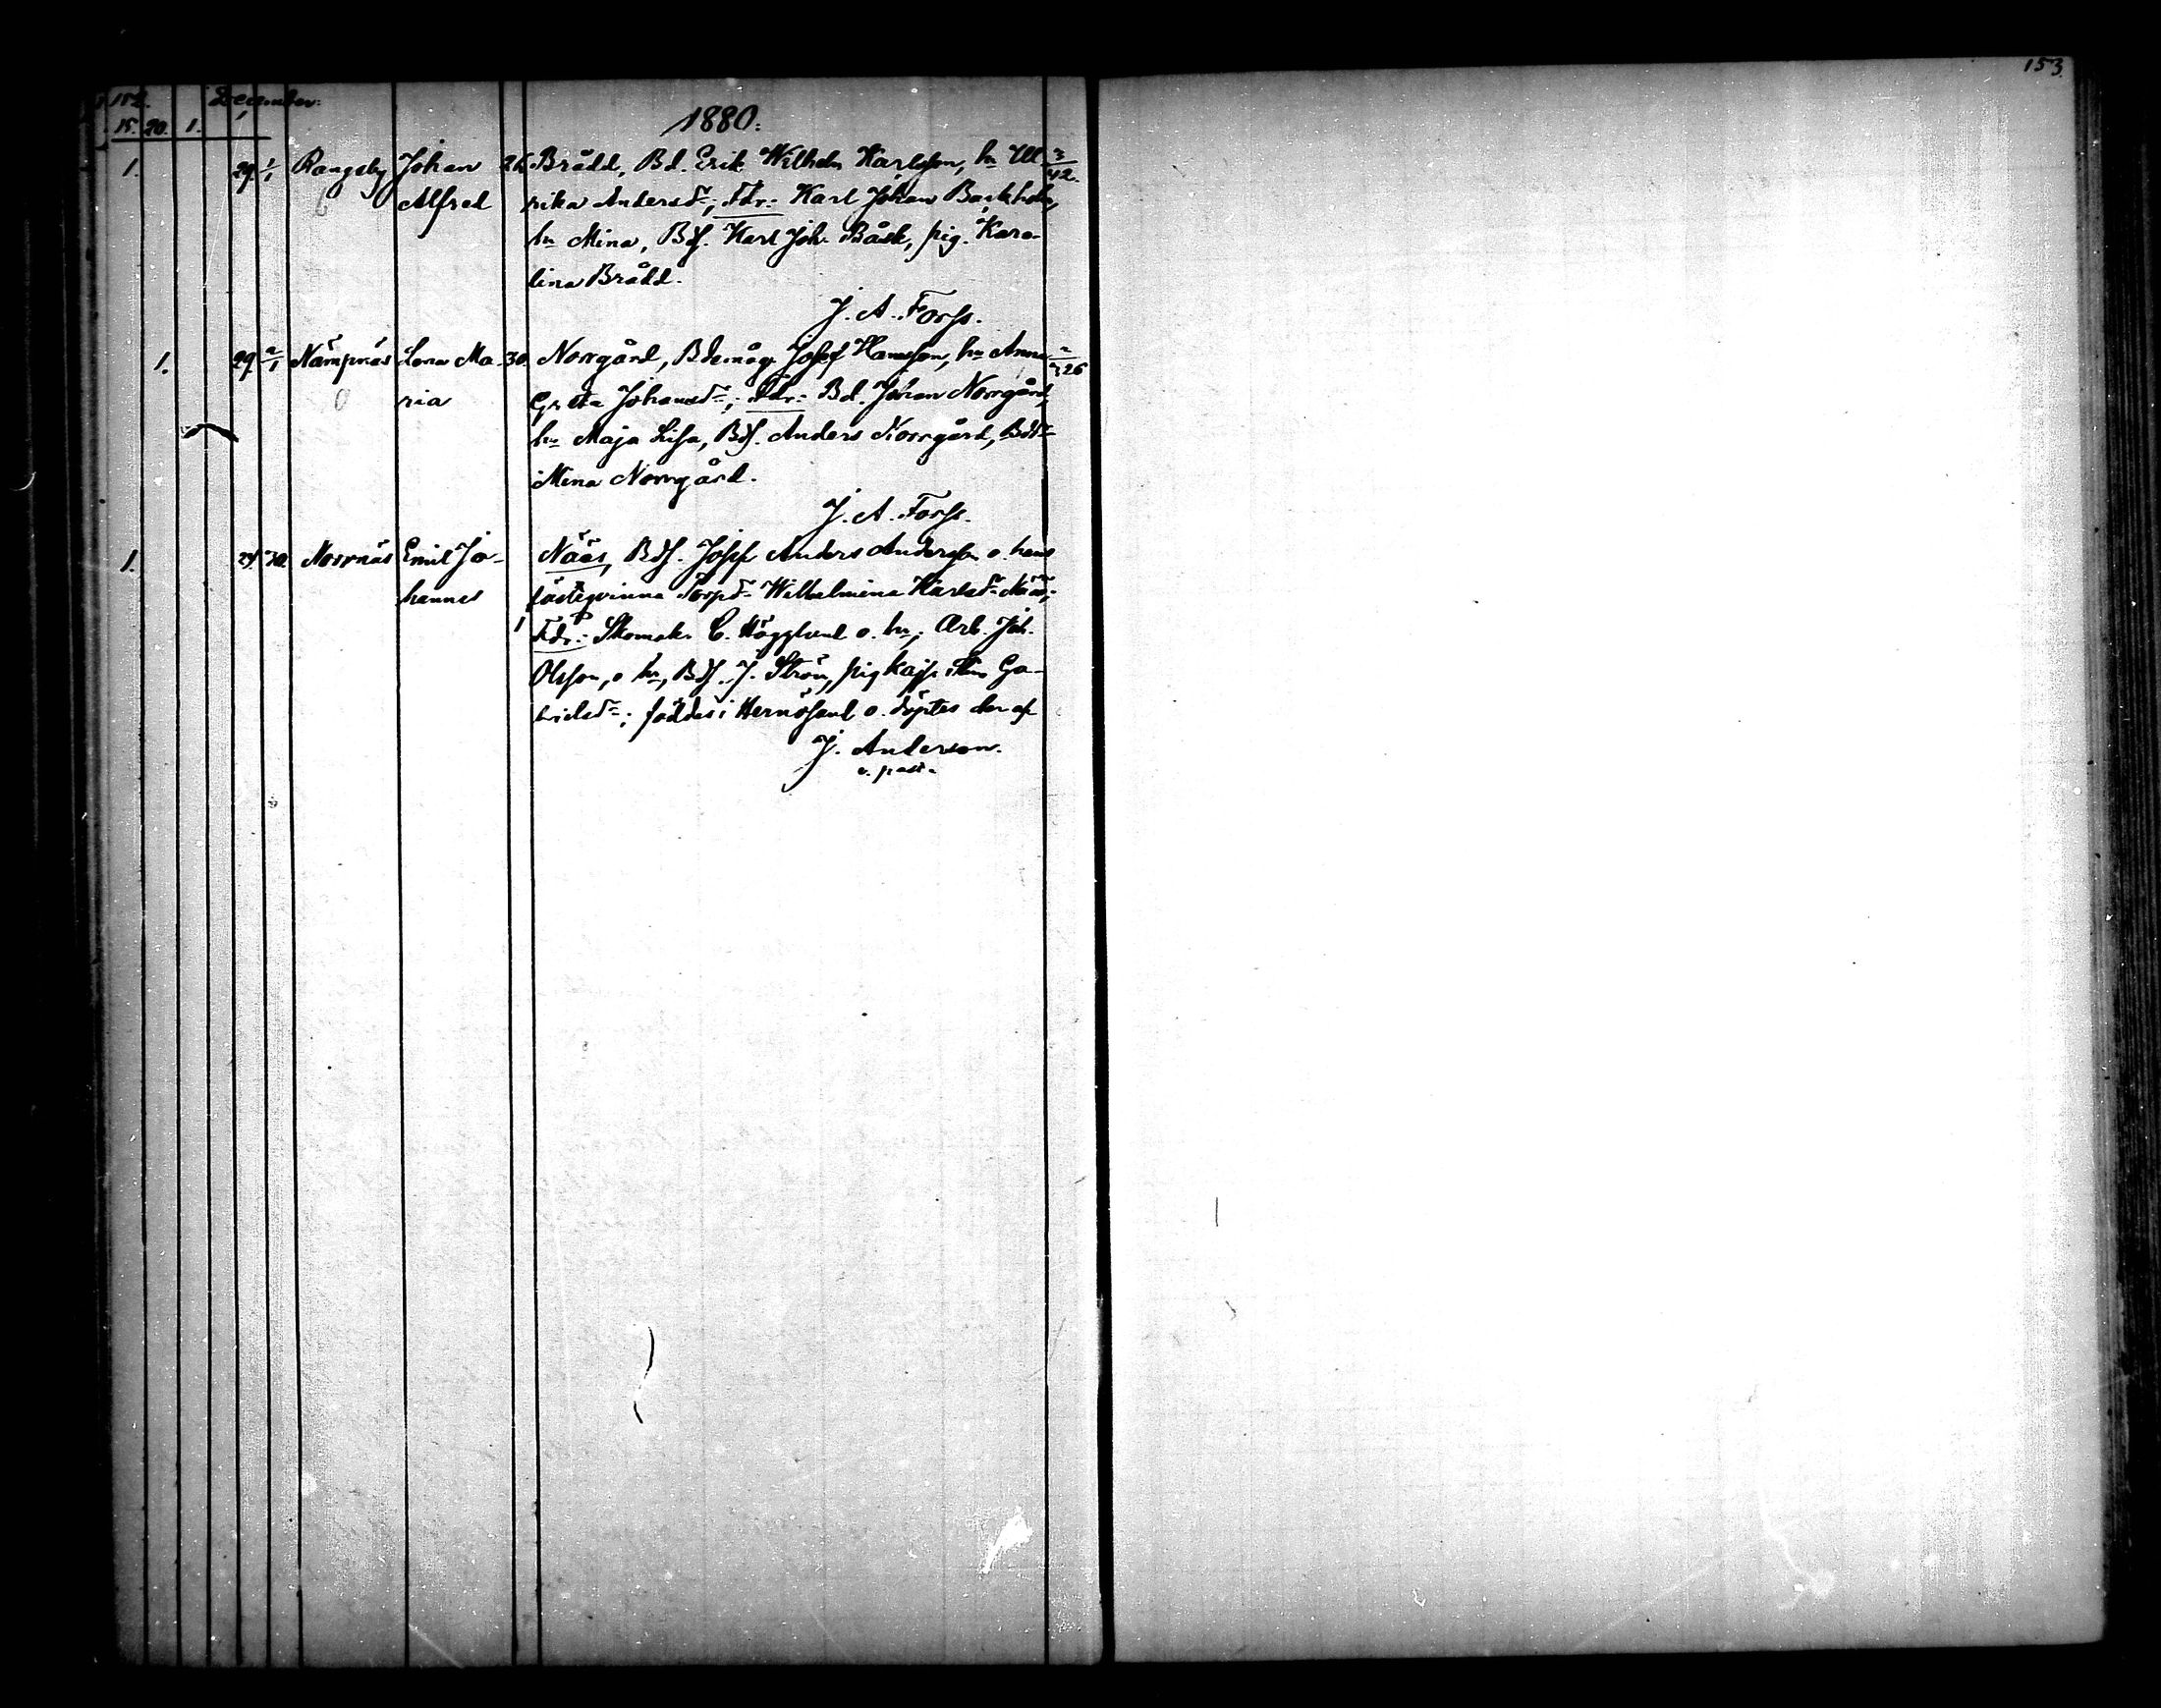 152. December. 153.
15. 20. 1. 1880.
1. 29 1/1 Rangsby Johan 26 Brådd, Bd. Erik Wilhelm Karlsson, hu Ul- 3/42.
Alfred rika Andersdr; Fdr: Karl Johan Backholm,
hu Mina, Bds. Karl Joh. Båsk, pig. Karo-
lina Brådd.
J. A. Forss.
1. 29 2/1 Nämpnäs Lena Ma- 30. Norrgård, Bdemåg Josef Hansson, hu Anna 2/326
ria Greta Johansdr; Fdr: Bd. Johan Norrgård,
hu Maja Lisa, Bds. Anders Norrgård, Bddr
Mina Norrgård.
J. A. Forss.
1. 29. 30. Norrnäs Emil Jo- Nääs, Bds. Josef Anders Andersson o. hans
hannes fästeqvinna Torpdr Wilhelmina Karlsdr Nääs;
Fdr: Skomak. C. Hägglund o. hu; Arb. Joh.
Olsson, o hu, Bds. J. Ström, pig Kajsa Ga-
brielsdr; föddes i Hernösand o. döptes der af
J. Anderson.
v. past.